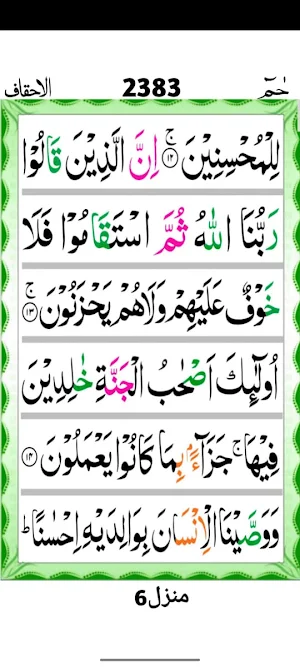 الاحقاف 2383 حٰمٓ
لِلْمُحْسِنِيْنَ ۚ‏﴿۱۲﴾ اِنَّ الَّذِيْنَ قَالُوْا
رَبُّنَا اللّٰهُ ثُمَّ اسْتَقَامُوْا فَلَا
خَوْفٌ عَلَيْهِمْ وَلَا هُمْ يَحْزَنُوْنَ ۚ‏﴿۱۳﴾
اُولٰٓئِكَ اَصْحٰبُ الْجَنَّةِ خٰلِدِيْنَ
فِيْهَا ۚ جَزَآءًۢ بِمَا كَانُوْا يَعْمَلُوْنَ ﴿۱۴﴾
وَوَصَّيْنَا الْاِنْسَانَ بِوَالِدَيْهِ اِحْسٰنًا ؕ
منزل 6